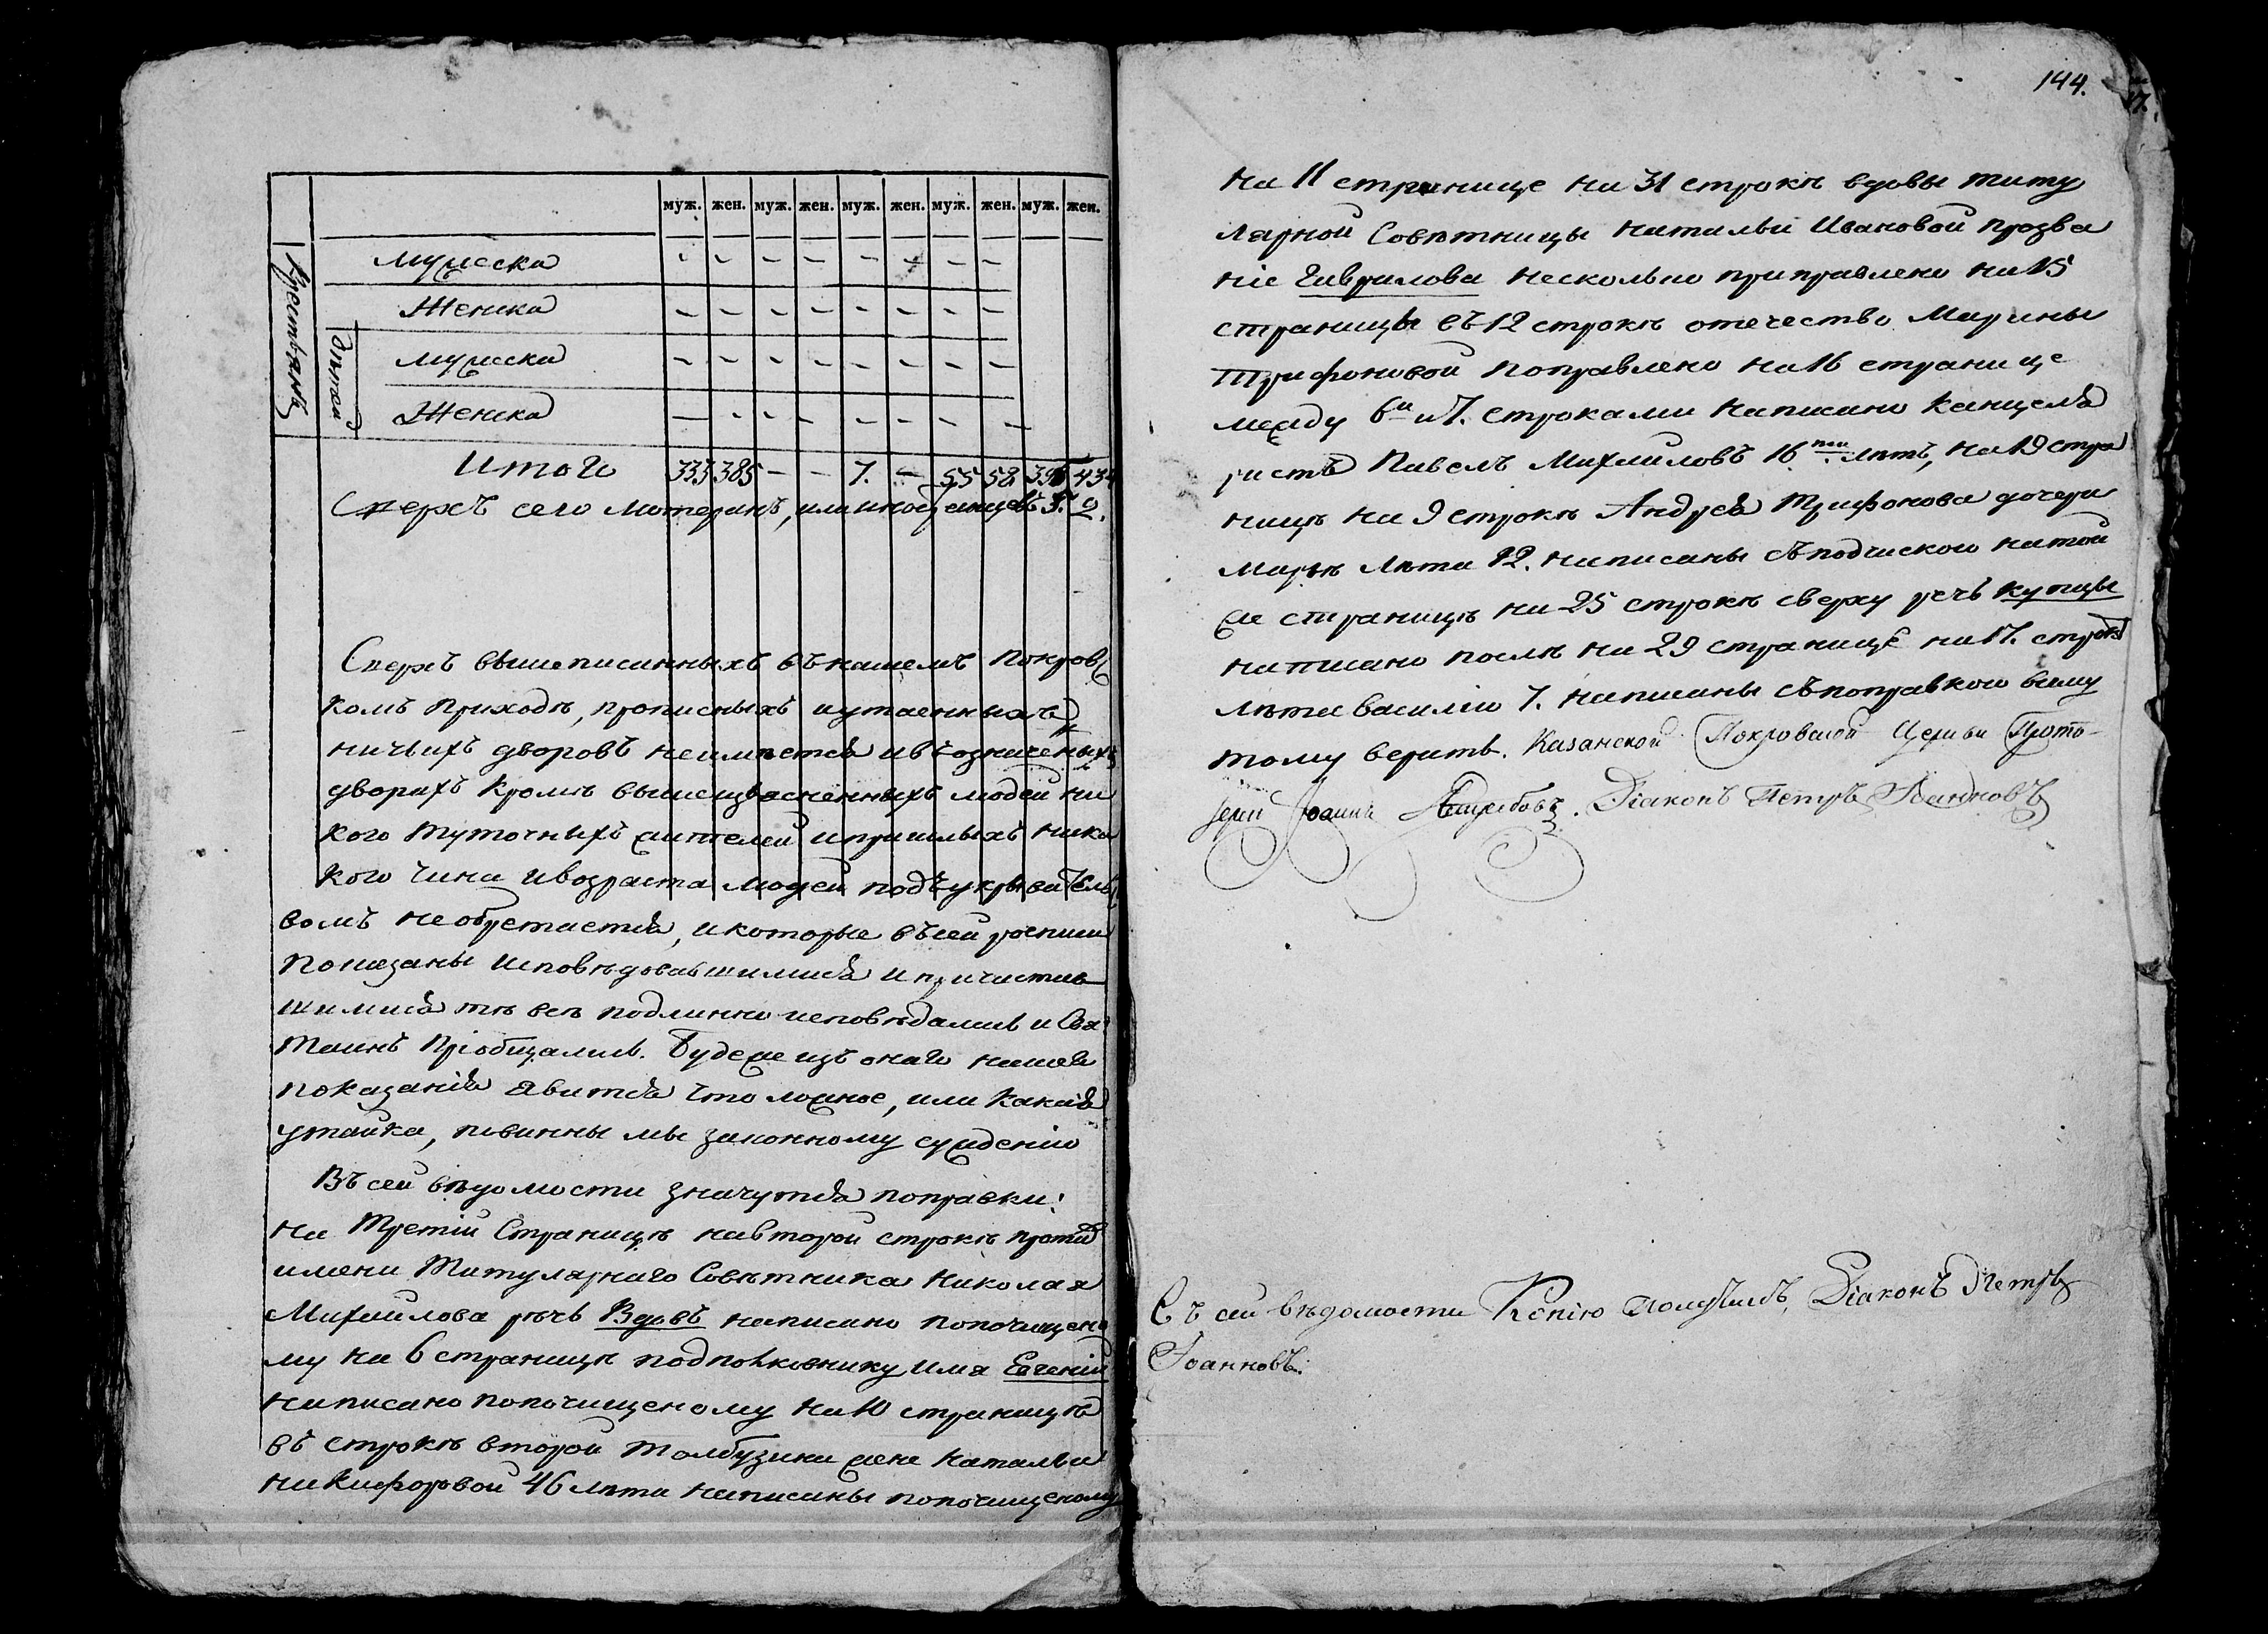 муж. жен. муж. жен. муж. жен. муж. жен. муж. жен.
Крестьянъ
Мужеска
Женска
дѣтей
мужеска
Женска
Итого 333 385 – – 7. – 55 58. 395 434
Сверхъ сего Лютеранъ, или иноземцевъ 5. 2.
Сверхъ вышеписанныхъ въ нашемъ Покровс
комъ Приходѣ, прописныхъ и утаенныхъ
ничьихъ дворовъ неимѣется и въ означеныхъ
дворахъ Кромѣ вышеизъясненныхъ людей ни
кого туточныхъ жителей и пришлыхъ ника
кого чина и возраста людей подъ укрывательс
вомъ необретается, и которые въ сей росписи
Показаны исповѣдовавшимися и причастив
шимися тѣ всѣ подлинно исповѣдались и Свя:
Таинъ Пріобщались. Будеже изъ онаго нашего
показанія явится что ложное, или какая
утайка, повинны мы законному сужденію
Въ сей вѣдомости значутся поправки:
На Третій Страницѣ на второй строкѣ против
имени Титулярнаго Совѣтника Николая
Михайлова рѣчь Вдовъ написано поподчищено
му на 6 страницѣ подполковнику имя Евгеній
написано поподчищеному на 10 страницѣ
въ строкѣ второй Толбузина жене Наталье
Никифоровой 46 лѣта написаны поподчищеному
144.
17.
на 11 странице на 31 строкѣ вдовы титу
лярной Совѣтницы Натальи Ивановой прозва
ніе Гаврилова несколько приправлено на 15
страницы въ 12 строкѣ отечество Марины
Трифоновой поправлено на 16 странице
между 6й и 7. строками написано Канцеля
ристъ Павелъ Михайловъ 16 лѣтъ, на 19 стра
ницѣ на 9 строкѣ Андрея Трифонова дочери
Марьѣ лѣта 12. написаны съ подчискою на той
же страницѣ на 25 строкѣ сверху речь купцы
написано послѣ на 29 странице на 17. строкѣ
лѣта Василію 7. написаны съ поправкою всему
тому верить. Казанской Покровской Церкви Прото-
іерей Іоаннъ Діаконъ Петръ Іоанновъ
Съ сей вѣдомости Копію получилъ, Діаконъ Петръ
Іоанновъ.